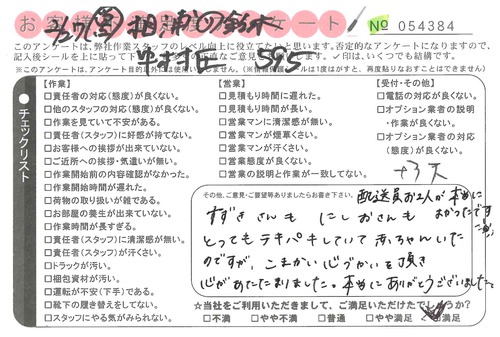 お客様 アンケート
№ 054384
このアンケートは、弊社作業スタッフのレベル向上に役立てたいと思います。否定的なアンケートになりますので、
記入後シールを上に貼って下
✓印は、いくつでも結構です。
チェックリスト
【作業】
□責任者の対応(態度)が良くない。
□他のスタッフの対応(態度)が良くない。
□作業を見ていて不安がある。
□責任者(スタッフ)に好感が持てない。
□お客様への挨拶が出来ていない。
□ご近所への挨拶・気遣いが無い。
□作業開始前の内容確認がなかった。
□作業開始時間が遅れた。
□荷物の取り扱いが雑である。
□お部屋の養生が出来ていない。
□作業時間が長すぎる。
□責任者(スタッフ)に清潔感が無い。
□責任者(スタッフ)が汗さい。
□トラックが汚い。
□梱包資材が汚い。
□運転が不安(下手)である。
□靴下の履き替えをしてない。
□スタッフにやる気がみられない。
【営業】
□見積もり時間に遅れた。
□見積もり時間が長い。
□営業マンに清潔感が無い。
□営業マンが煙草くさい。
□営業マンが汗さい。
□営業態度が良くない。
□営業の説明と作業が一致してない。
【受付・その他】
□電話の対応が良くない。
□オプション業者の説明
・作業が良くない。
□オプション業者の対応
(態度)が良くない。
その他、ご意見・ご要望等ありましたらお書き下さい。
配送員お2人が本当に
よかったです
すずきさんも にしおさんも
とってもテキパキしていて赤ちゃんいた
のですが、こまかい心づかいを頂き
心があたたまりました。本当にありがとうございました
☆当社をご利用いただきまして、ご満足いただけたでしょうか?
□不満 □やや不満 □普通 □やや満足 ☑満足